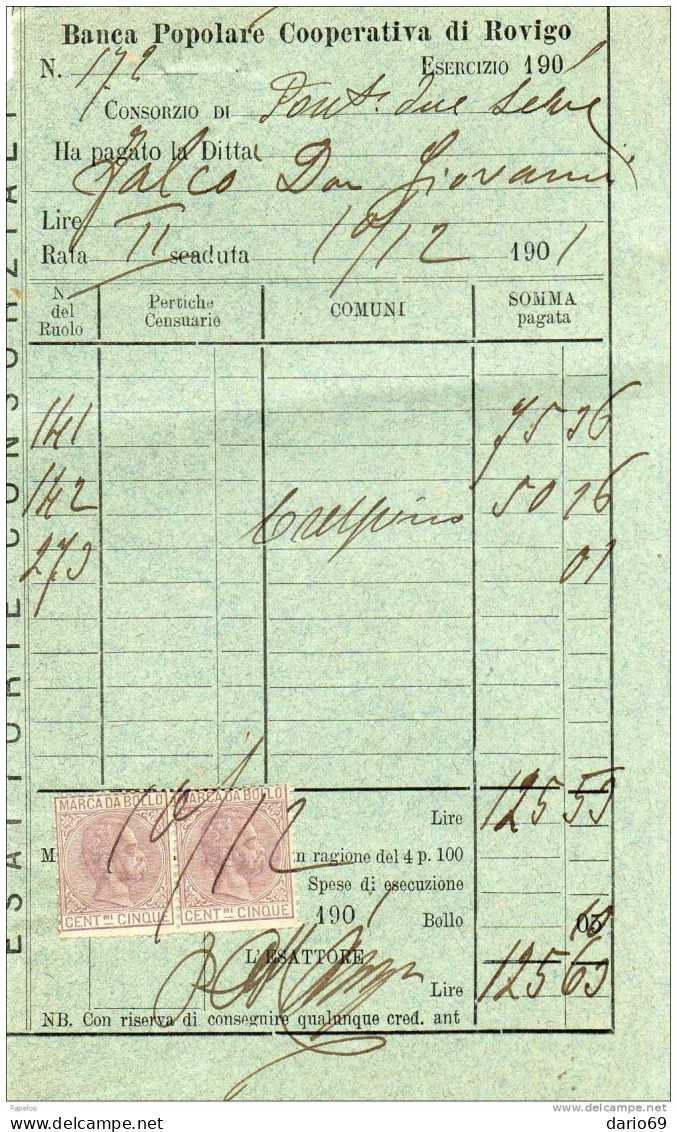 Banca Popolare Cooperativa di Rovigo
N. 172 Esercizio 1901
Consorzio di Pont. due Selve
Ha pagato la Ditta
Falco Don Giovanni
Lire
Rata II scaduta 10/12 1901
N. del Ruolo Pertiche Censuarie COMUNI SOMMA pagata
141 75 36
142 Crespino 50 16
273 01
ESATTORIE CONSORZIALI
MARCA DA BOLLO MARCA DA BOLLO
10/12
Lire 125 53
M in ragione del 4 p. 100
Spese di esecuzione
CENT.MI CINQUE CENT.MI CINQUE
1901 Bollo 05 10
L'ESATTORE
Lire 125 63
NB. Con riserva di conseguire qualunque cred. ant
Papelos
www.delcampe.net
dario69